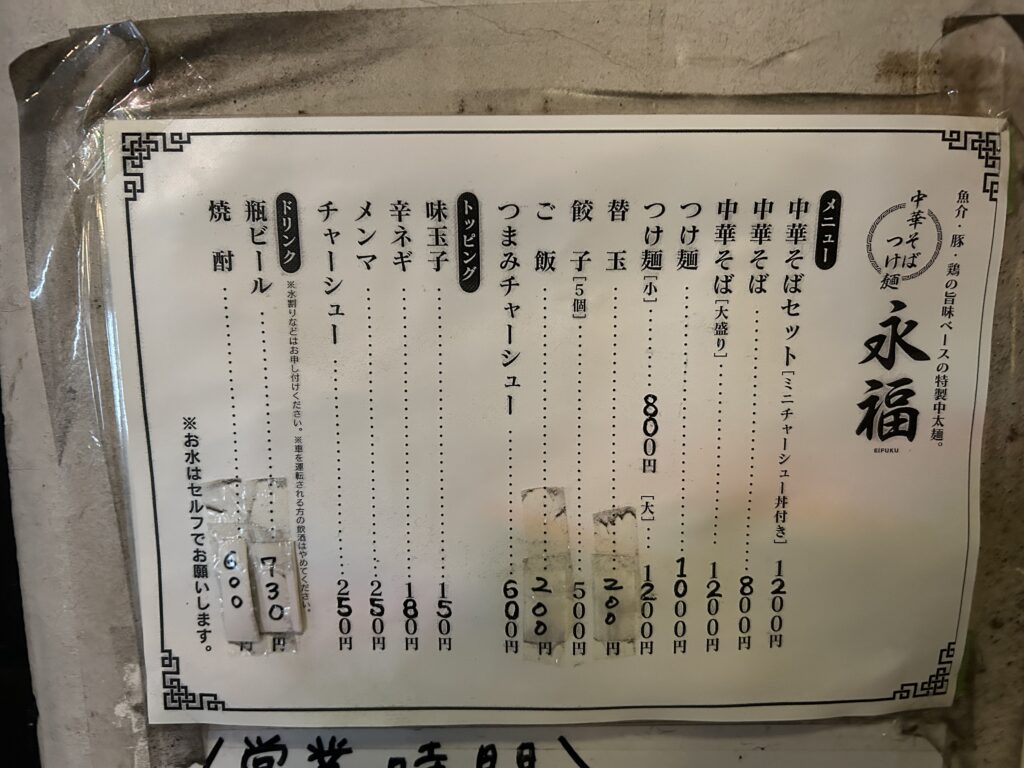 魚介・豚・鶏の旨味ベースの特製中太麺。
中華そば
つけ麺
永福
EIFUKU
メニュー
中華そばセット[ミニチャーシュー丼付き] 1200円
中華そば 800円
中華そば[大盛り] 1200円
つけ麺 1000円
つけ麺[小] 800円 [大] 1200円
替玉 200円
餃子[5個] 500円
ご飯 200円
つまみチャーシュー 600円
トッピング
味玉子 150円
辛ネギ 180円
メンマ 250円
チャーシュー 250円
ドリンク
※水割りなどはお申し付けください。※車を運転される方の飲酒はやめてください。
瓶ビール 730円
焼酎 600円
※お水はセルフでお願いします。
営業時間